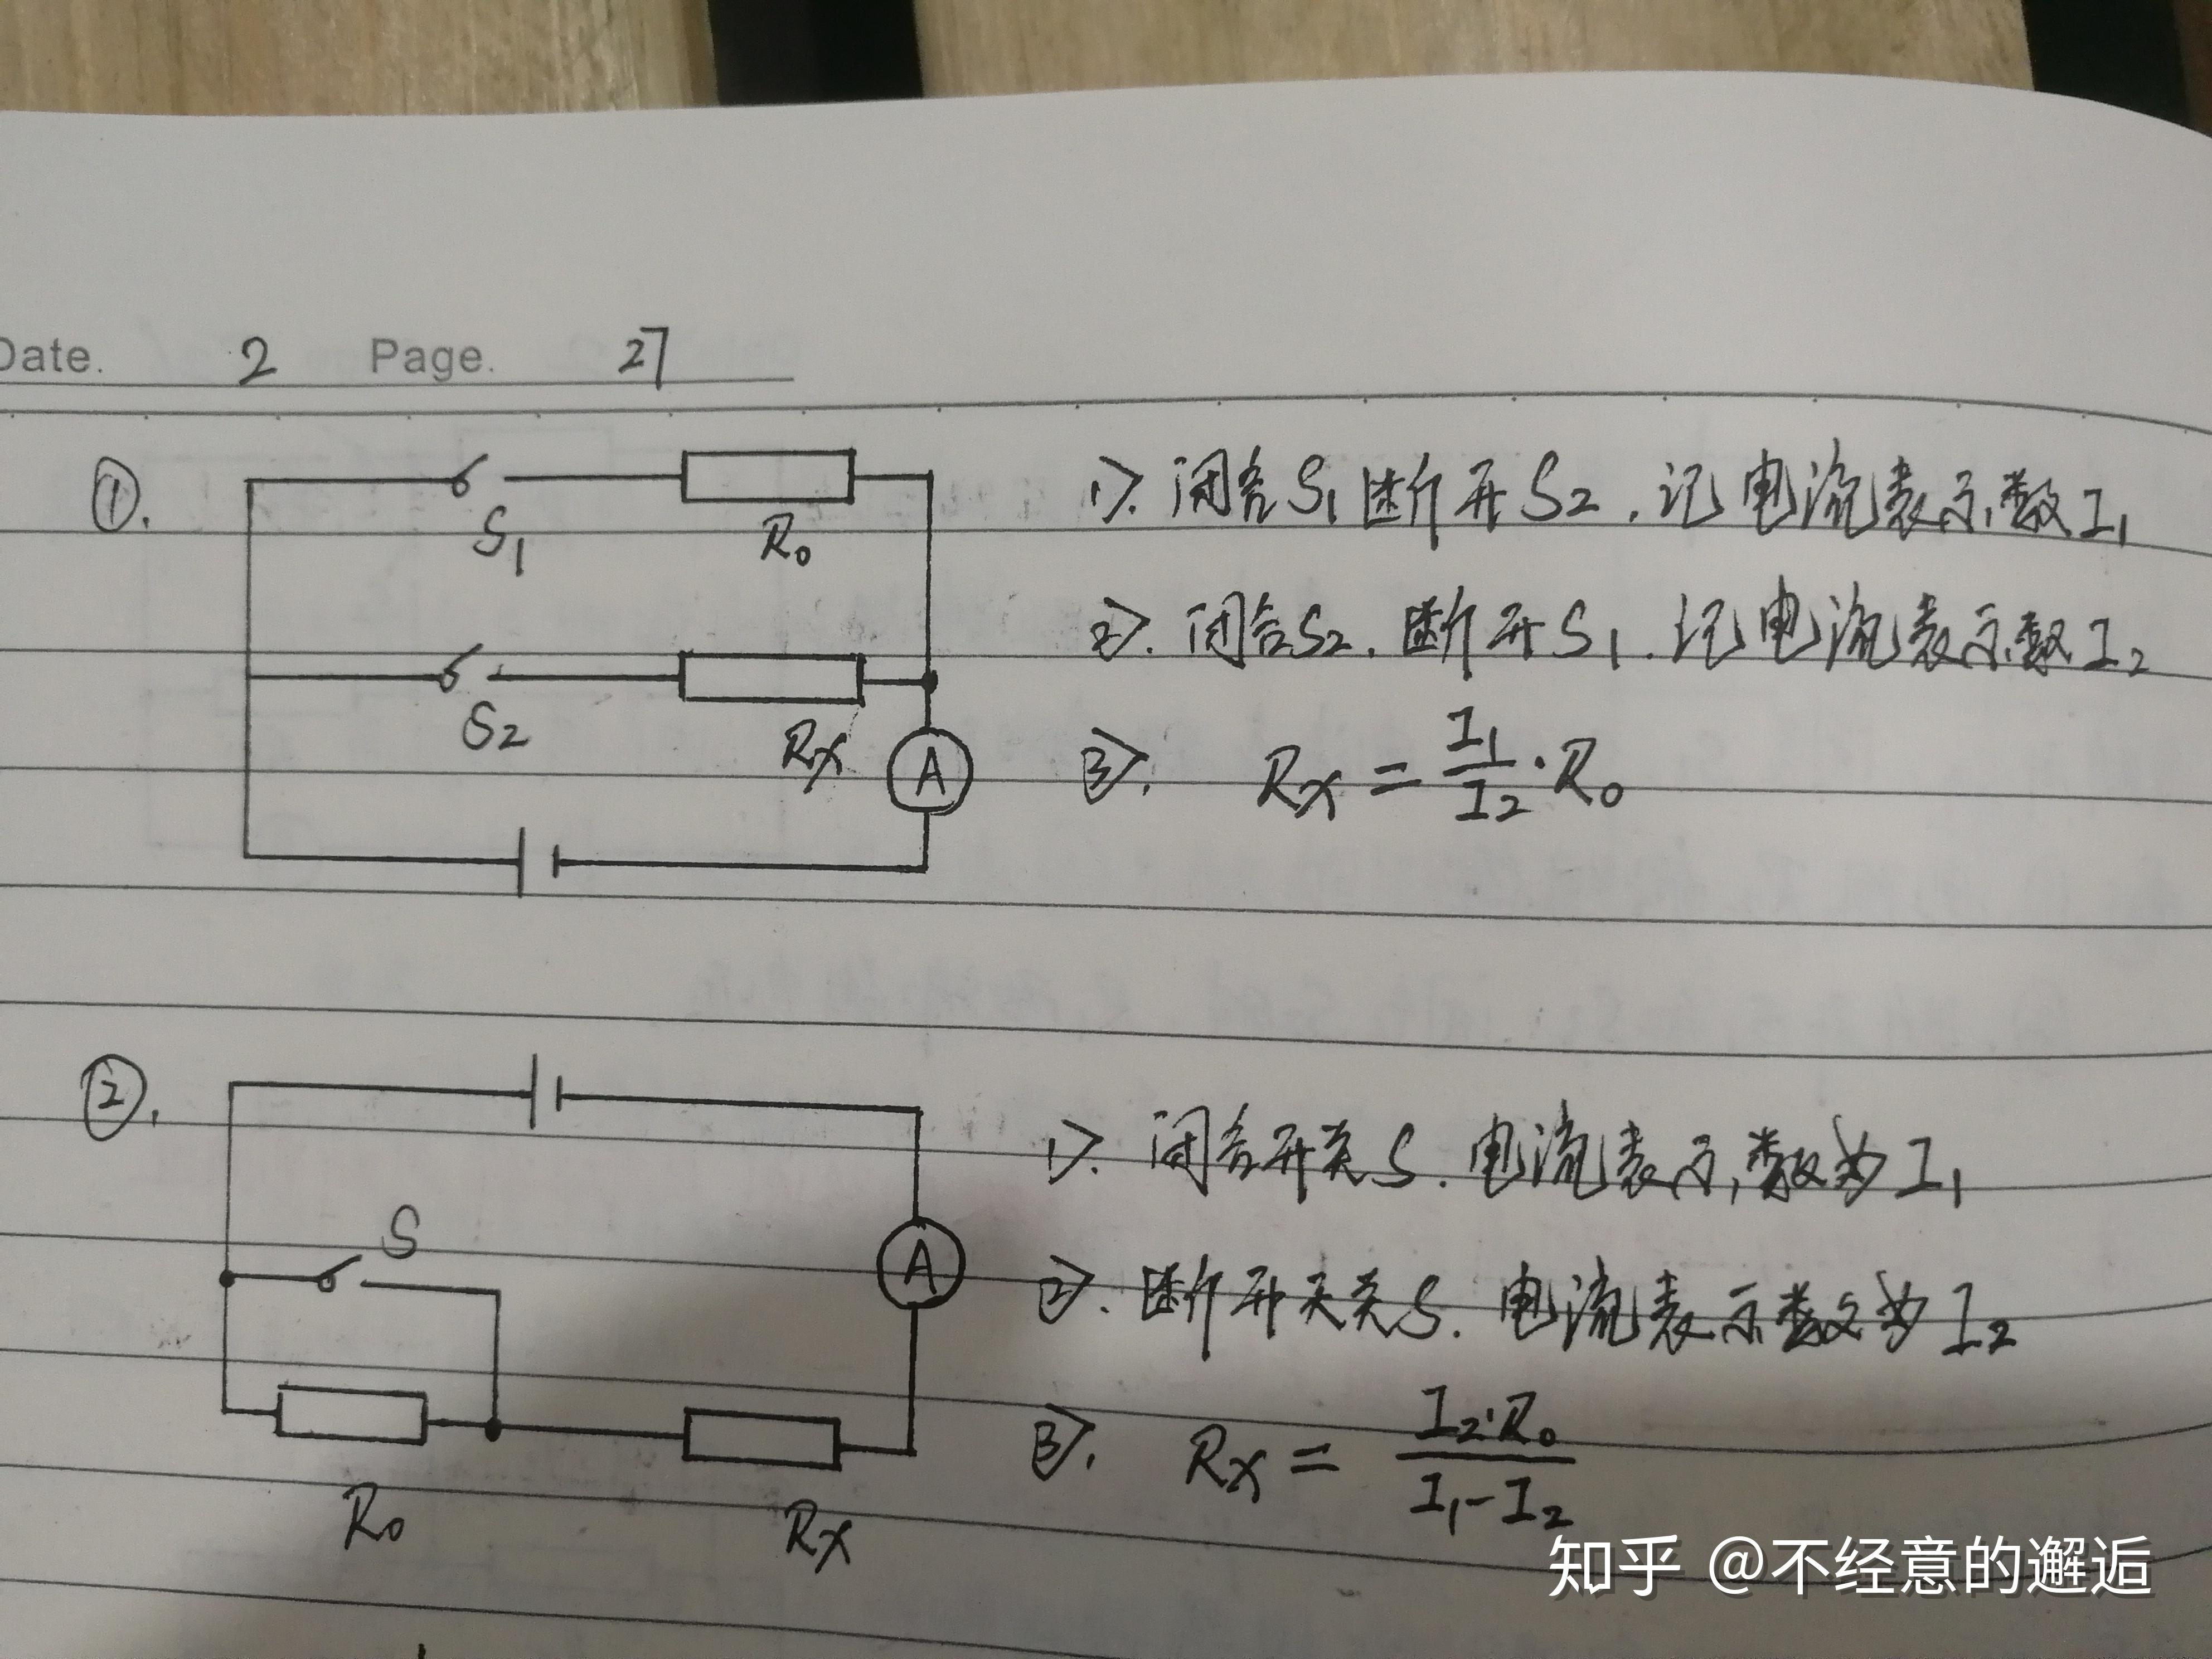 Date. 2 Page. 27
①.
S₁
R₀
S₂
Rx
A
1>. 闭合S₁断开S₂.记电流表示数I₁
2>. 闭合S₂.断开S₁.记电流表示数I₂
3>. Rx = I₁/I₂·R₀
②.
S
A
R₀
Rx
1>. 闭合开关S.电流表示数为I₁
2>. 断开开关S.电流表示数为I₂
3>. Rx = I₂·R₀/I₁-I₂
知乎 @不经意的邂逅